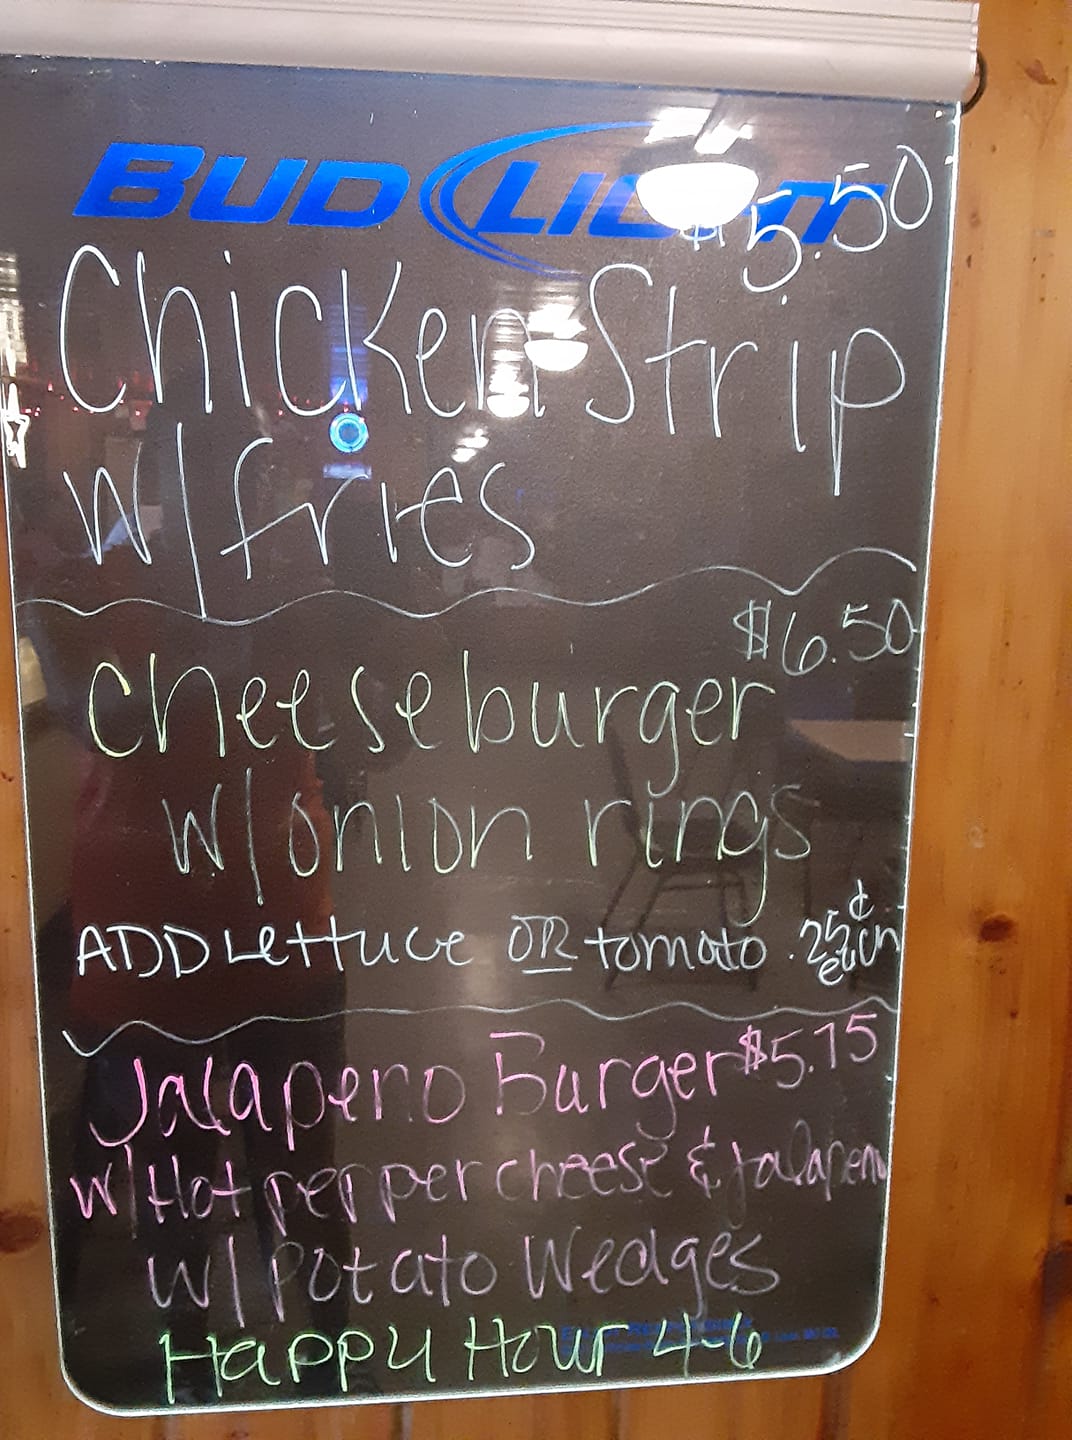 BUD LIGHT
$5.50
Chicken Strip
w/fries
$6.50
cheeseburger
w/onion rings
ADD Lettuce OR tomato .25¢ each
Jalapeno Burger $5.75
w/Hot pepper cheese & jalapeno
w/Potato Wedges
Happy Hour 4-6